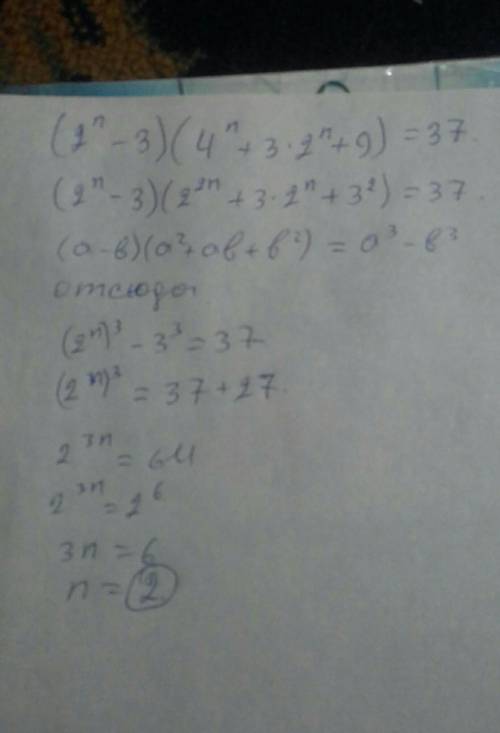 (2ⁿ - 3)(4ⁿ + 3·2ⁿ + 9) = 37.
(2ⁿ - 3)(2²ⁿ + 3·2ⁿ + 3²) = 37.
(a-в)(a²+aв+в²) = a³-в³
отсюда
(2ⁿ)³ - 3³ = 37
(2ⁿ)³ = 37 + 27.
2³ⁿ = 64
2³ⁿ = 2⁶
3n = 6
n = 2